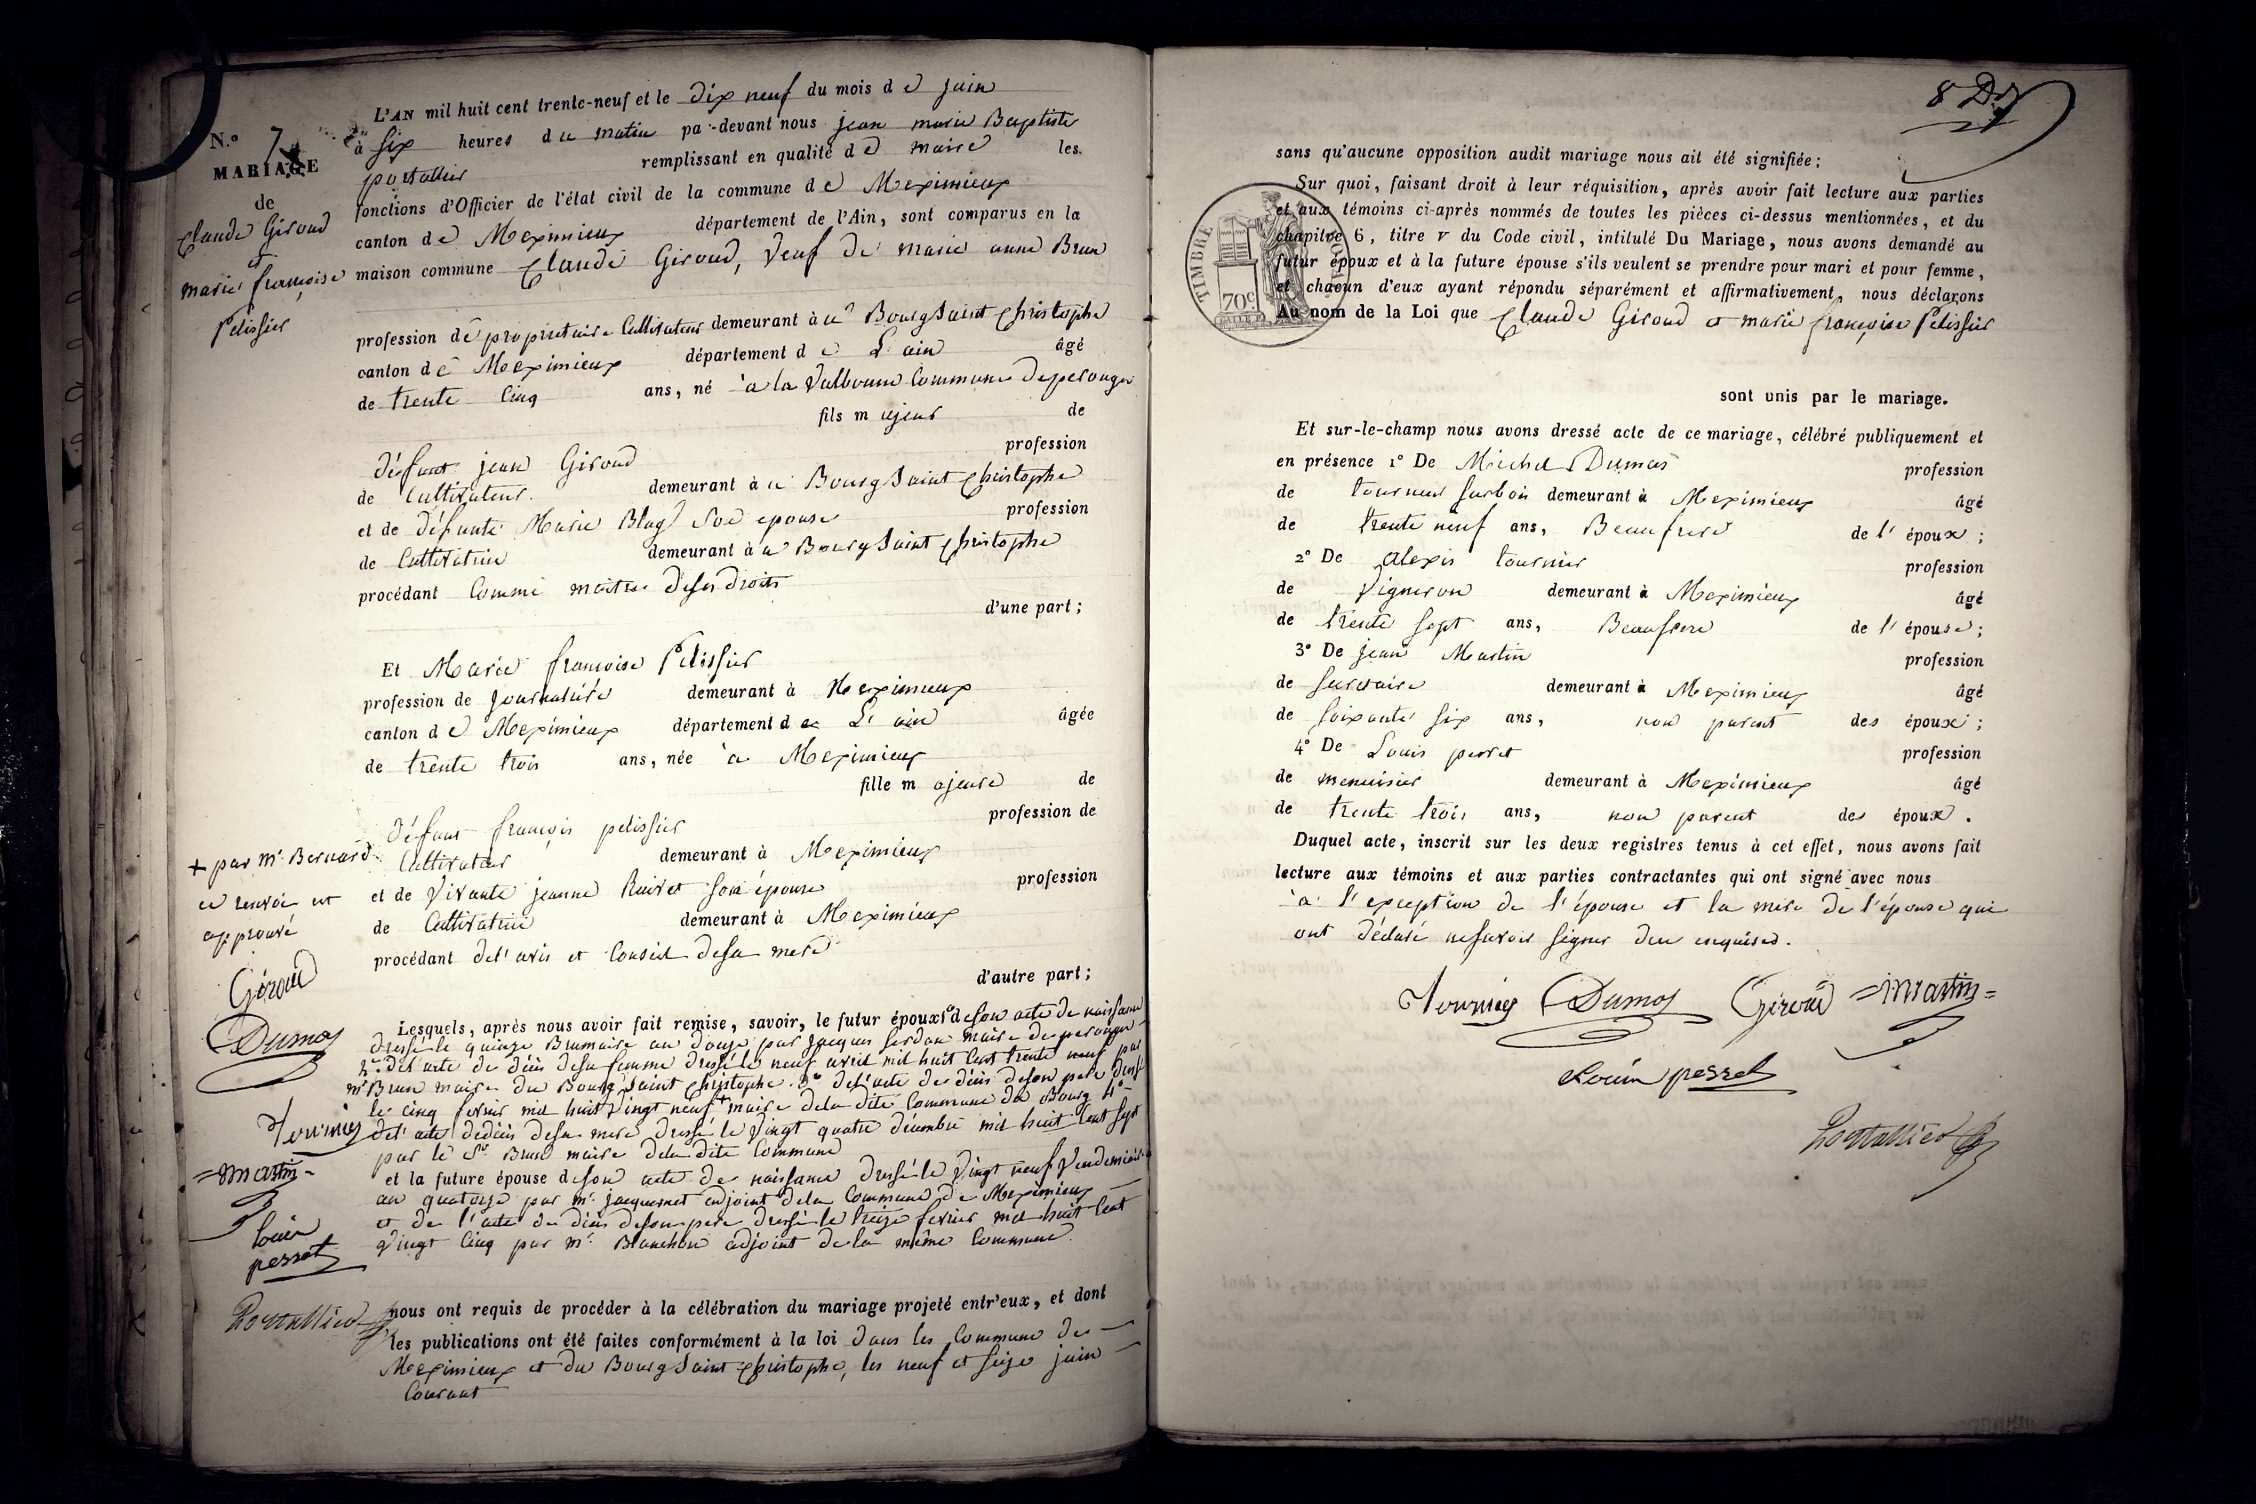 N.o 7
MARIAGE
de
Claude Giroud
et
marie françoise
Pelissier
L'AN mil huit cent trente-neuf et le dix neuf du mois de juin
à six heures du matin par-devant nous jean marie Baptiste
portallier remplissant en qualité de maire les
fonctions d'Officier de l'état civil de la commune de Meximieux
canton de Meximieux département de l'Ain, sont comparus en la
maison commune Claude Giroud, veuf de marie anne Brun
profession de propriétaire Cultivateur demeurant à u Bourg Saint Christophe
canton de Meximieux département de L'ain âgé
de trente cinq ans, né à la Valbonne Commune deperouges
fils majeur de
défunt jean Giroud profession
de Cultivateur demeurant à u Bourg Saint Christophe
et de défunte Marie Son epouse profession
de Cultivatrice demeurant à u Bourg Saint Christophe
procédant Comme maitre deses droits
d'une part;
Et Marie françoise Pelissier
profession de journalière demeurant à Meximieux
canton de Meximieux département de L'ain âgée
de trente trois ans, née à Meximieux
fille majeure de
défunt françois pelissier profession de
Cultivateur demeurant à Meximieux
et de Vivante jeanne son épouse profession
de Cultivatrice demeurant à Meximieux
procédant del'avis et Conseil desa mere
d'autre part;
Lesquels, après nous avoir fait remise, savoir, le futur époux 1o deson acte de naissance
dressé le quinze Brumaire an douze par jacques maire de perouges
2o del'acte de décès desa femme dressé le neuf avril mil huit Cent trente neuf par
mr Brun maire du Bourg Saint Christophe. 3o del'acte de décès deson pere dressé
le cinq fevrier mil huit vingt neuf + maire dela dite Commune du Bourg 4o
del'acte dedécès desa mere dressé le vingt quatre décembre mil huit Cent sept
par le Sr Brun maire dela dite Commune
et la future épouse deson acte de naissance dressé le vingt neuf Vendemiaire
an quatorze par mr. jacquemet adjoint dela Commune de Meximieux
et de l'acte de décès deson pere dressé le treize fevrier mil huit Cent
vingt Cinq par mr. Blanchon adjoint de la même Commune.
nous ont requis de procéder à la célébration du mariage projeté entr'eux, et dont
les publications ont été faites conformément à la loi dans les Commune de
Meximieux et du Bourg Saint Christophe, les neuf et seize juin
Courant
+ par mr. Bernard
ce renvoi est
approuvé
Giroud
Dumas
Tournier
=martin=
Louis
perret
Portallier
8
sans qu'aucune opposition audit mariage nous ait été signifiée;
Sur quoi, faisant droit à leur réquisition, après avoir fait lecture aux parties
et aux témoins ci-après nommés de toutes les pièces ci-dessus mentionnées, et du
chapitre 6, titre v du Code civil, intitulé Du Mariage, nous avons demandé au
futur époux et à la future épouse s'ils veulent se prendre pour mari et pour femme,
et chacun d'eux ayant répondu séparément et affirmativement, nous déclarons
Au nom de la Loi que Claude Giroud et marie françoise Pelissier
TIMBRE ROYAL
70c
sont unis par le mariage.
Et sur-le-champ nous avons dressé acte de ce mariage, célébré publiquement et
en présence 1o De Michel Dumas profession
de tourneur surbois demeurant à Meximieux âgé
de trente neuf ans, Beaufrere de l'époux;
2o De alexis tournier profession
de Vigneron demeurant à Meximieux âgé
de trente sept ans, Beaufrere de l'épouse;
3o De jean Martin profession
de secretaire demeurant à Meximieux âgé
de soixante six ans, non parent des époux;
4o De Louis perret profession
de menuisier demeurant à Meximieux âgé
de trente trois ans, non parent des époux.
Duquel acte, inscrit sur les deux registres tenus à cet effet, nous avons fait
lecture aux témoins et aux parties contractantes qui ont signé avec nous
à l'exception de l'épouse et la mere de l'épouse qui
ont déclaré nesavoir signer deu enquises.
Tournier Dumas Giroud =martin=
Louis perret
Portallier